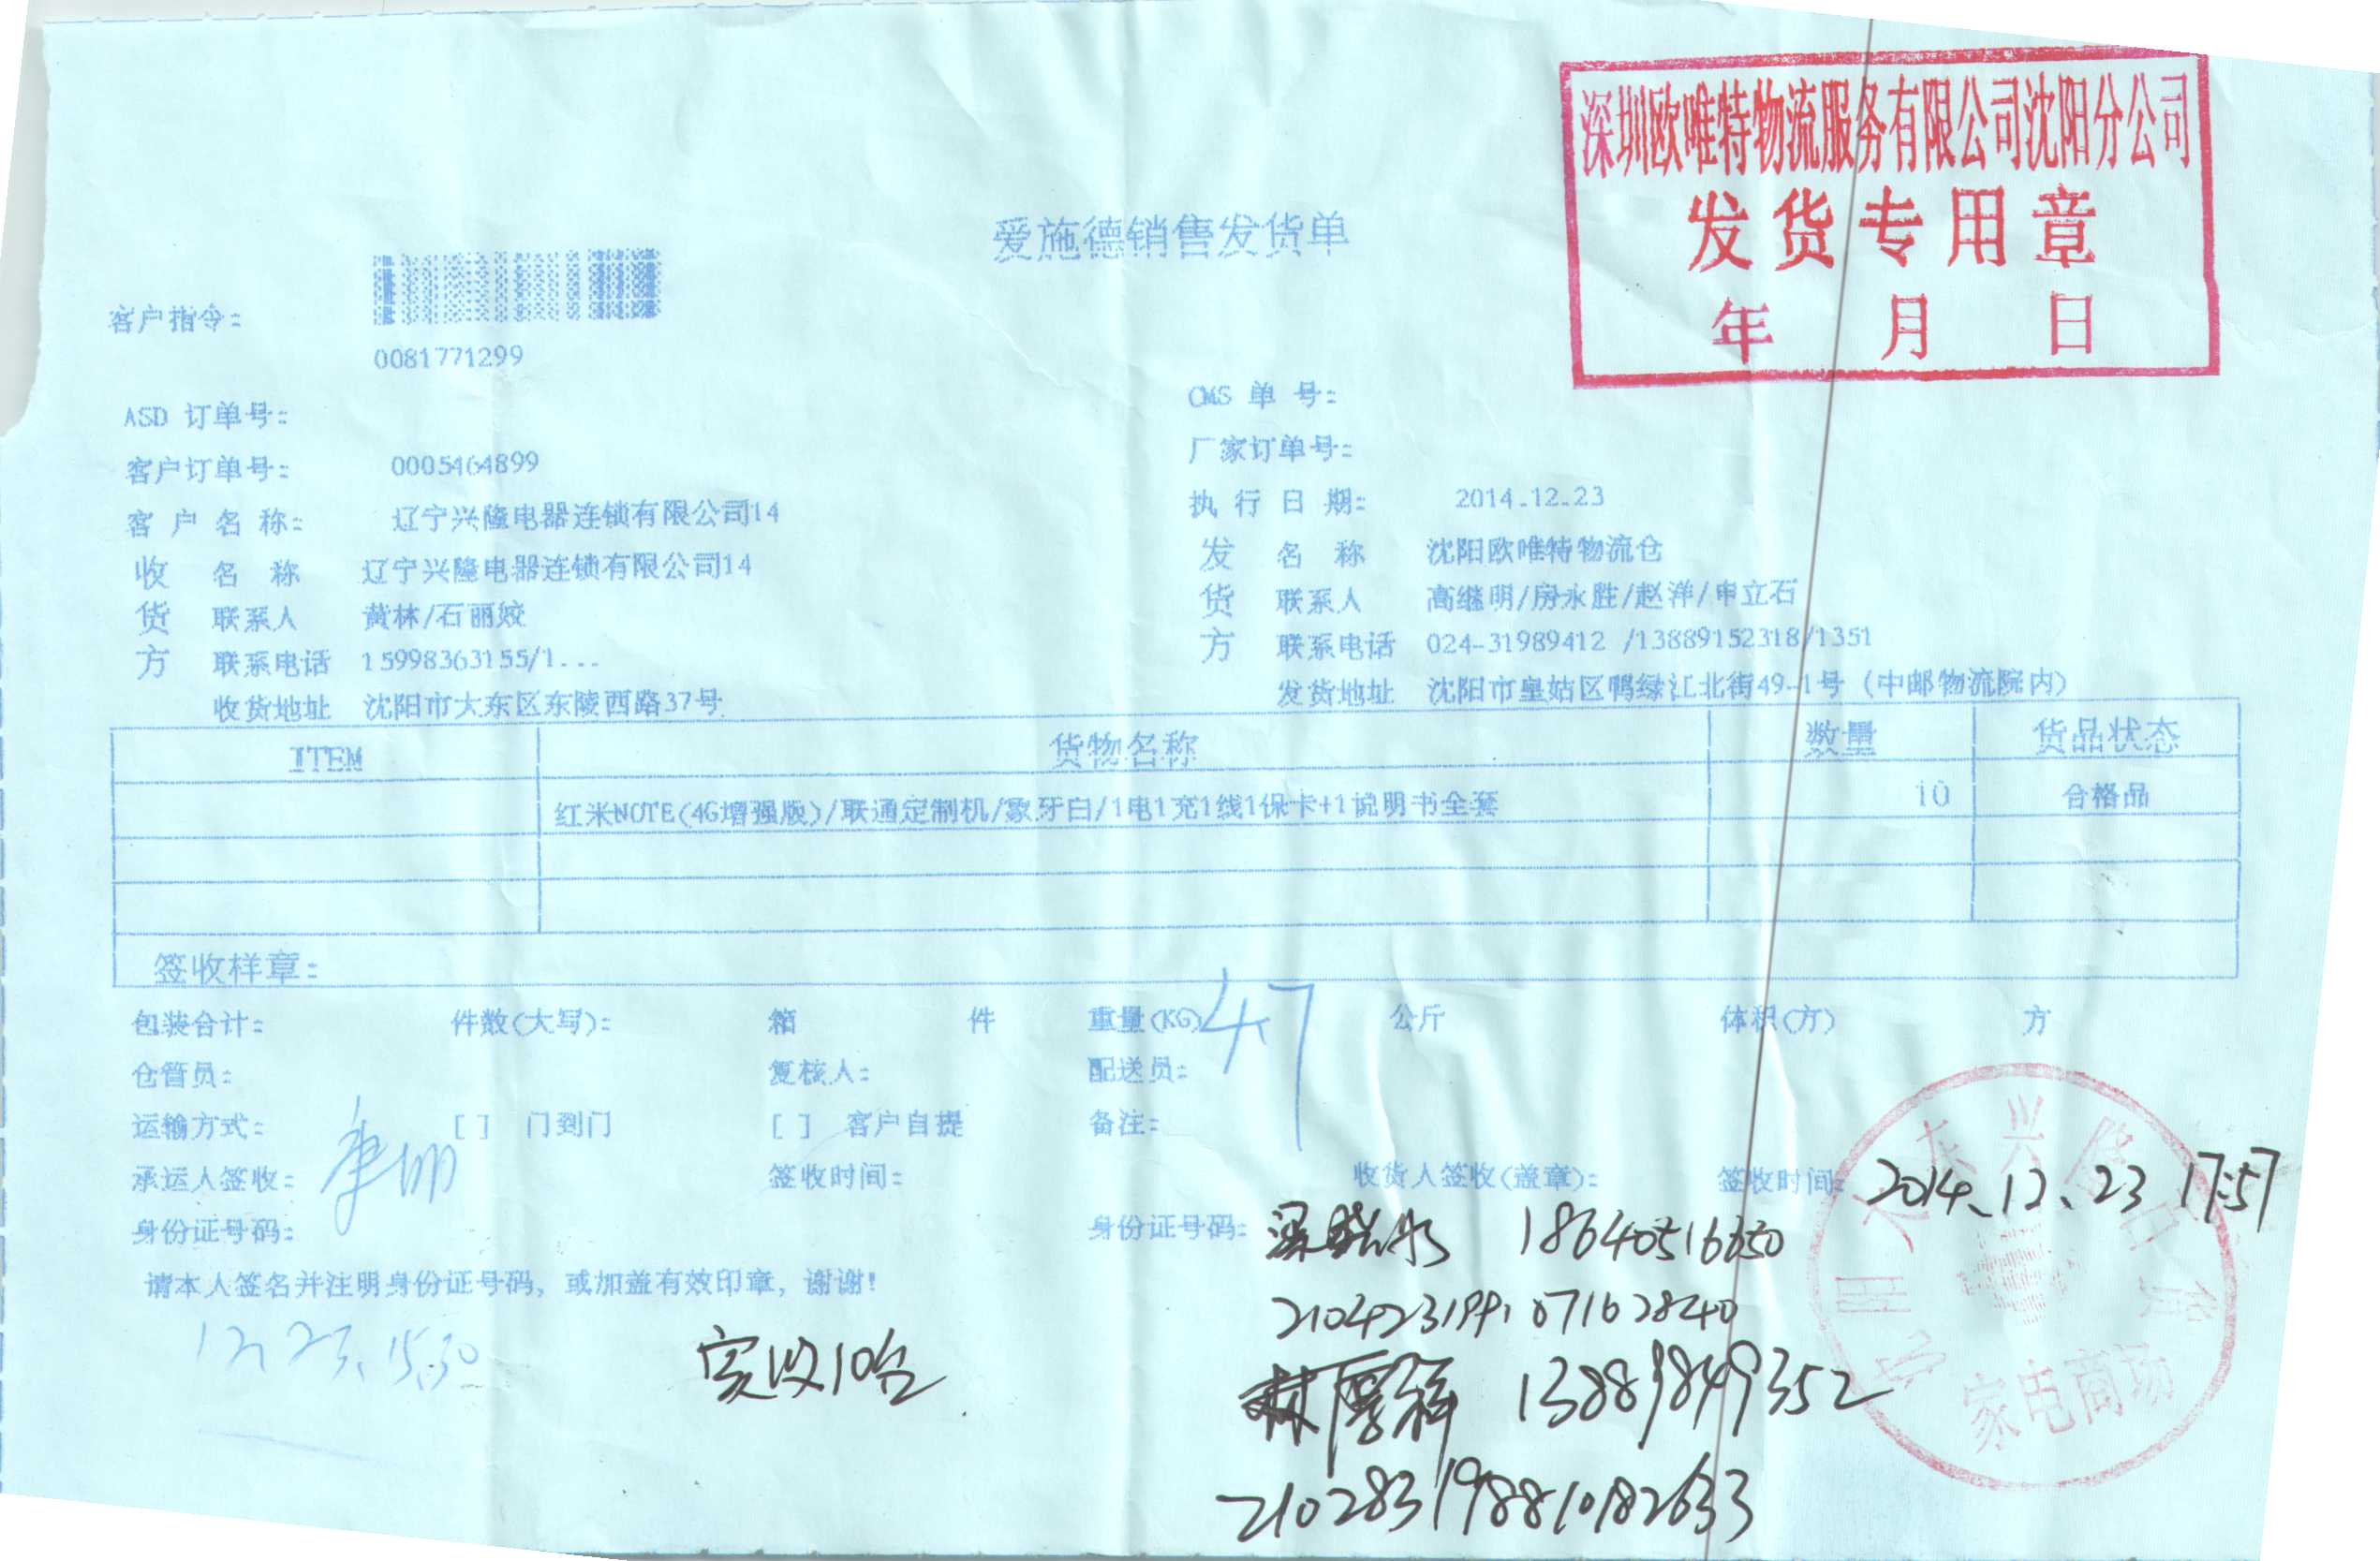 深圳欧唯特物流服务有限公司沈阳分公司
发货专用章
年 月 日
爱施德销售发货单
客户指令:
0081771299
ASD 订单号:
CMS 单 号:
客户订单号: 0005464899
厂家订单号:
客 户 名 称: 辽宁兴隆电器连锁有限公司14
执 行 日 期: 2014-12-23
收 名 称 辽宁兴隆电器连锁有限公司14
发 名 称 沈阳欧唯特物流仓
货 联系人 黄林/石丽姣
货 联系人 高继明/房永胜/赵洋/申立石
方 联系电话 15998363155/1...
方 联系电话 024-31989412 /13889152318/1351
收货地址 沈阳市大东区东陵西路37号
发货地址 沈阳市皇姑区鸭绿江北街49-1号 (中邮物流院内)
ITEM 货物名称 数量 货品状态
红米NOTE(4G增强版)/联通定制机/象牙白/1电1充1线1保卡+1说明书全套 10 合格品
签收样章:
包装合计: 件数(大写): 箱 件 重量(KG) 47 公斤 体积(方) 方
仓管员: 复核人: 配送员:
运输方式: [ ] 门到门 [ ] 客户自提 备注:
承运人签收: 签收时间: 收货人签收(盖章): 签收时间: 2014.12.23 17:57
身份证号码: 身份证号码: 18640516650
请本人签名并注明身份证号码, 或加盖有效印章, 谢谢!
210423199107162840
12.23.15:30
实收10台
林厚祥 13889849352
210283198810182633
家电商场